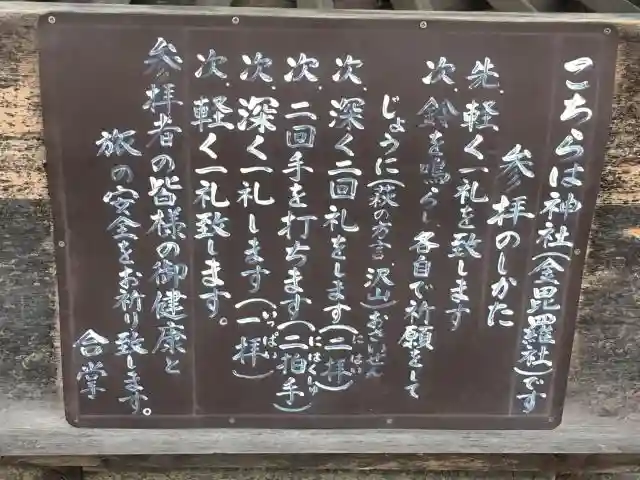 こちらは神社(金毘羅社)です
参拝のしかた
先、軽く一礼を致します
次、鈴を鳴らし、各自で祈願をして
じょうに(萩の方言 沢山)おさいせん
次、深く二回礼をします(二拝)にはい
次、二回手を打ちます(二拍手)にはくしゅ
次、深く一礼します(一拝)いっぱい
次、軽く一礼致します。
参拝者の皆様の御健康と
旅の安全をお祈り致します。
合掌